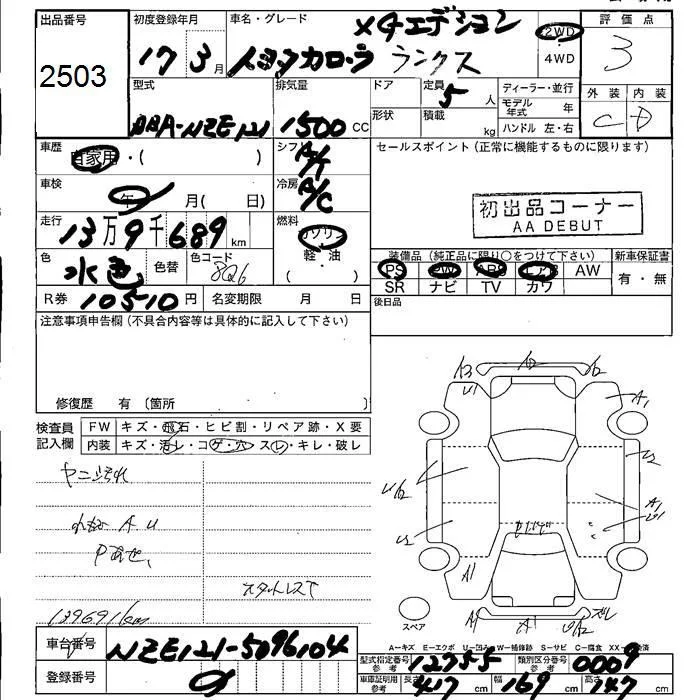 出品番号
2503
初度登録年月
17 3 月
車名・グレード
XGエディション
トヨタカローラ ランクス
2WD
・
4WD
評価点
3
外装 内装
C D
型式
DBA-NZE121
排気量
1500 CC
ドア
形状
定員
5 人
積載
kg
ディーラー・並行
モデル年式 年
ハンドル 左・右
車歴
自家用・( )
シフト
A/T
車検
年 月( 日)
冷房
A/C
走行
13万9千689 km
燃料
ガソリン
・
軽・油
( )
色
水色
色替
色コード
8Q6
R券 10510 円
名変期限 月 日
セールスポイント(正常に機能するものに限ります)
初出品コーナー
AA DEBUT
装備品(純正品に限り○をつけて下さい)
PS PW ABS エアB AW
SR ナビ TV カワ
新車保証書
有・無
後日品
注意事項申告欄(不具合内容等は具体的に記入して下さい)
修復歴 有〔箇所 〕
検査員記入欄
FW キズ・飛石・ヒビ割・リペア跡・X要
内装 キズ・汚レ・コゲ・穴 スレ・キレ・破レ
ヤニ汚れ
A U
P あせ、
スタットレスT
139691km
A3 U1 A2 A2
A1
U2
U2
A1
A1
A1
U2
ズレ
スペア
A—キズ E—エクボ U—凹み W—補修跡 S—サビ C—腐食 XX—交換済
車台番号
NZE121-5096104
登録番号
型式指定番号 参考
12755
類別区分番号 参考
0009
車庫証明用 参考
長さ 417 cm 幅 169 cm 高さ 147 cm